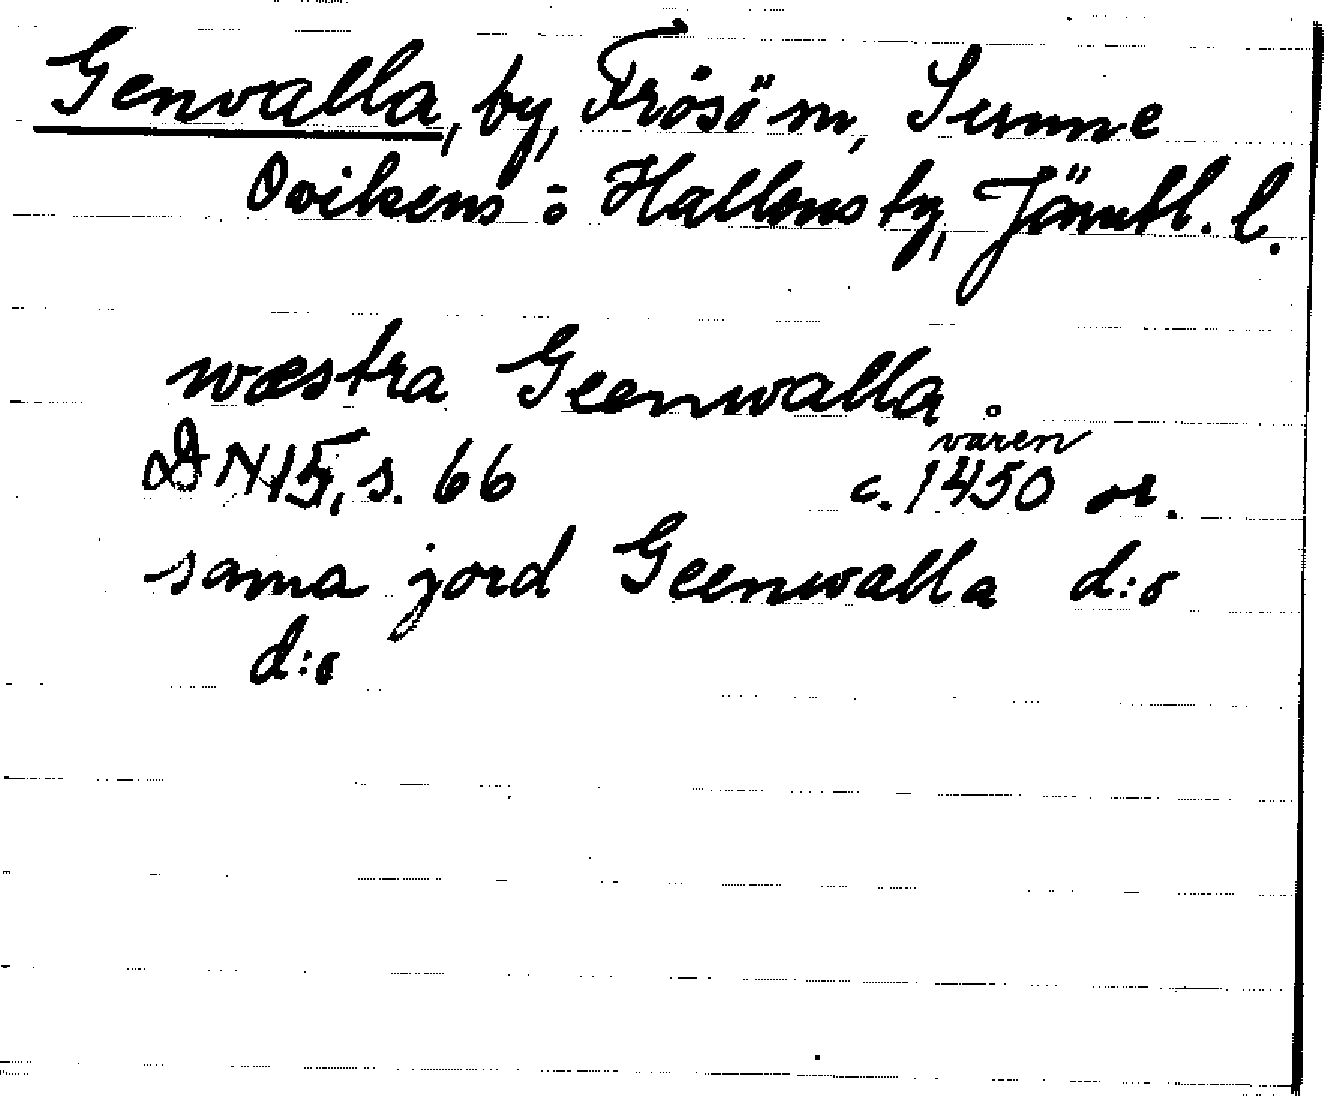 Genvalla, by, Frösö sn, Sunne
Ovikens o Hallens tg, Jämtl. l.
wæstra Geenwalla.
DN 15, s. 66 våren c. 1450 or.
sama jord Geenwalla d:o
d:o